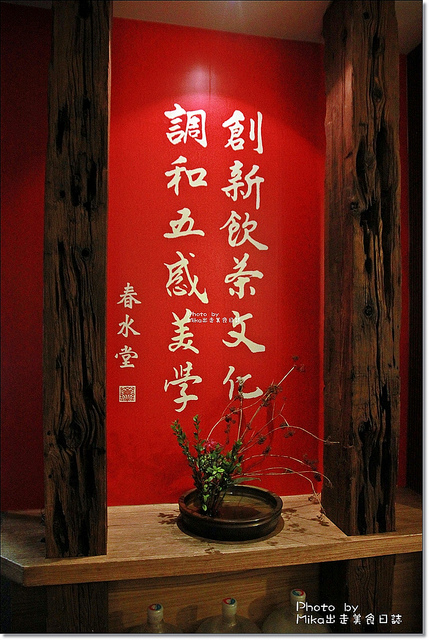 創新飲茶文化
調和五感美學
春水堂
Photo by
Mika出走美食日誌
Photo by
Mika出走美食日誌